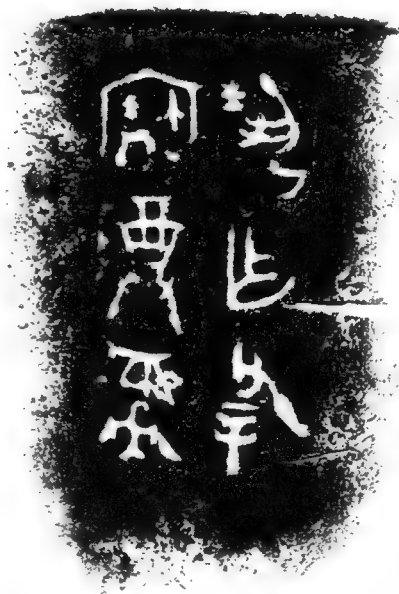 乍父辛
寶尊彝